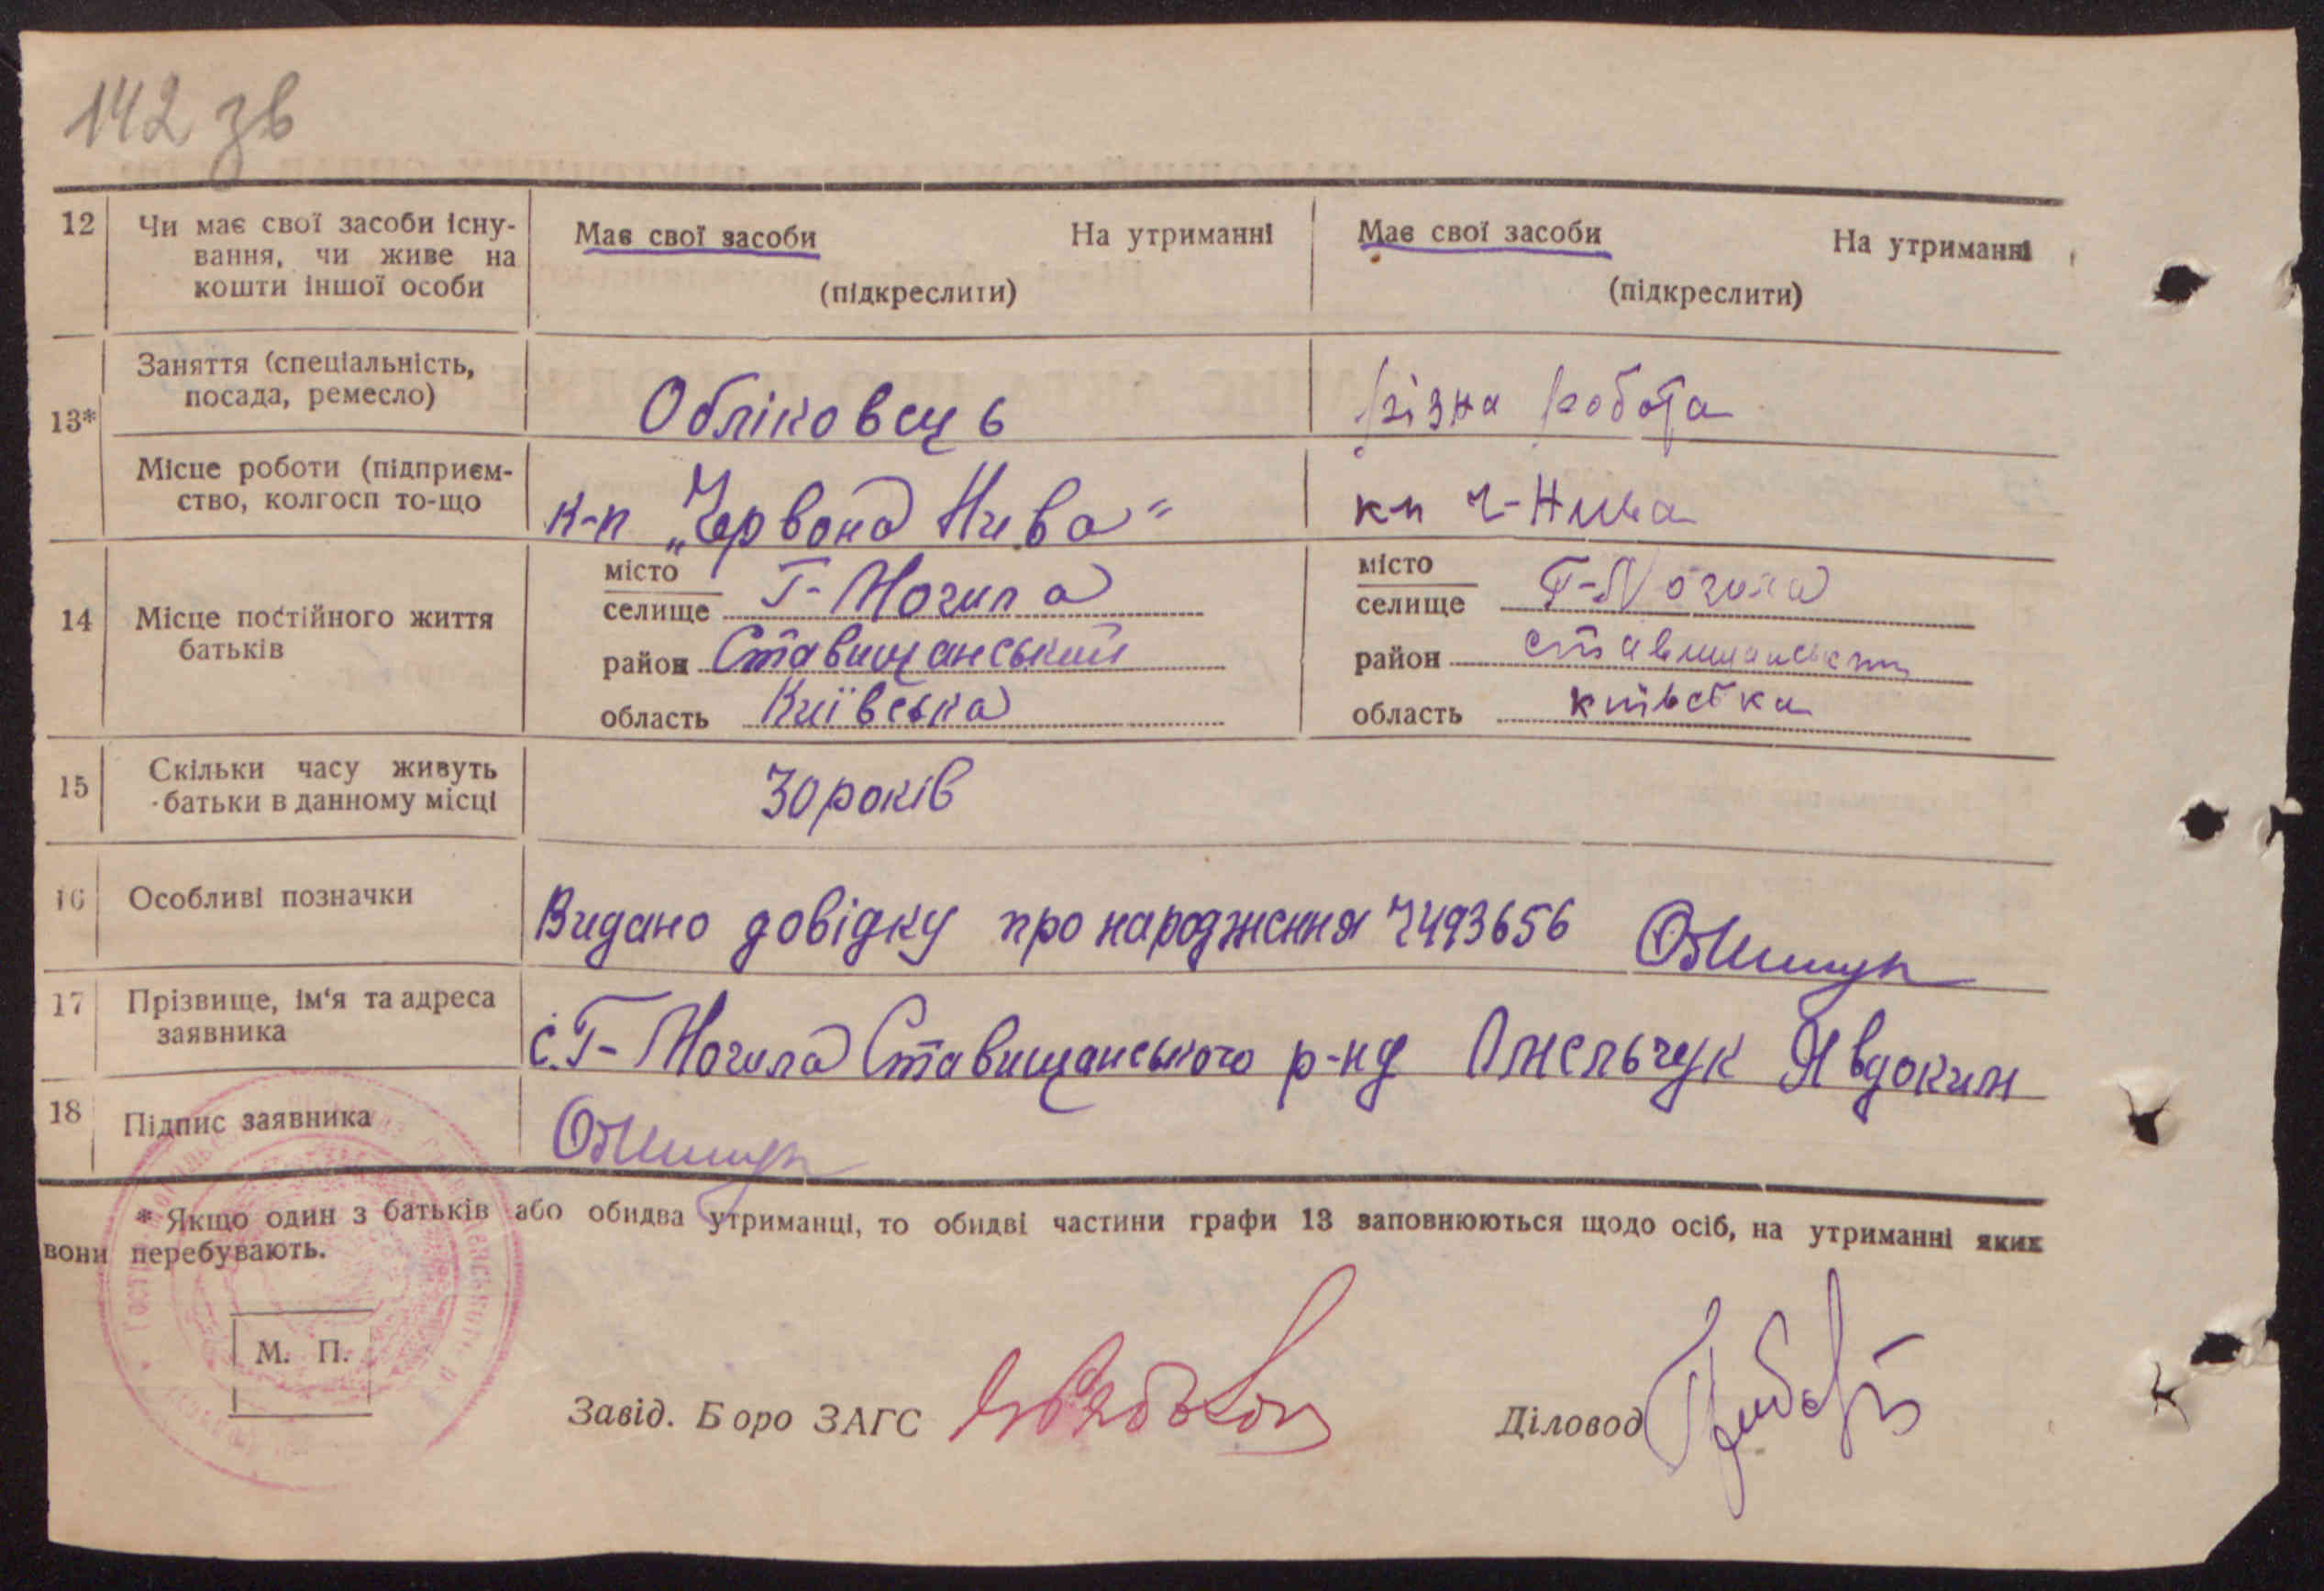 142 зв
12 Чи має свої засоби існу-
вання, чи живе на
кошти іншої особи
Має свої засоби На утриманні
(підкреслити)
Має свої засоби На утриманні
(підкреслити)
13*
Заняття (спеціальність,
посада, ремесло)
Обліковець
різна робота
Місце роботи (підприєм-
ство, колгосп то-що
к-п „Червона Нива"
к-п Ч-Нива
14 Місце постійного життя
батьків
місто
селище Т-Могила
район Ставищанський
область Київська
місто
селище Т-Могила
район Ставищанський
область київська
15 Скільки часу живуть
батьки в данному місці
30 років
16 Особливі позначки
Видано довідку про народження 7493656
17 Прізвище, ім'я та адреса
заявника
с. Т-Могила Ставищанського р-ну Омельчук Явдоким
18 Підпис заявника
* Якщо один з батьків або обидва утриманці, то обидві частини графи 13 заповнюються щодо осіб, на утриманні яких
вони перебувають.
М. П.
Завід. Боро ЗАГС
Діловод